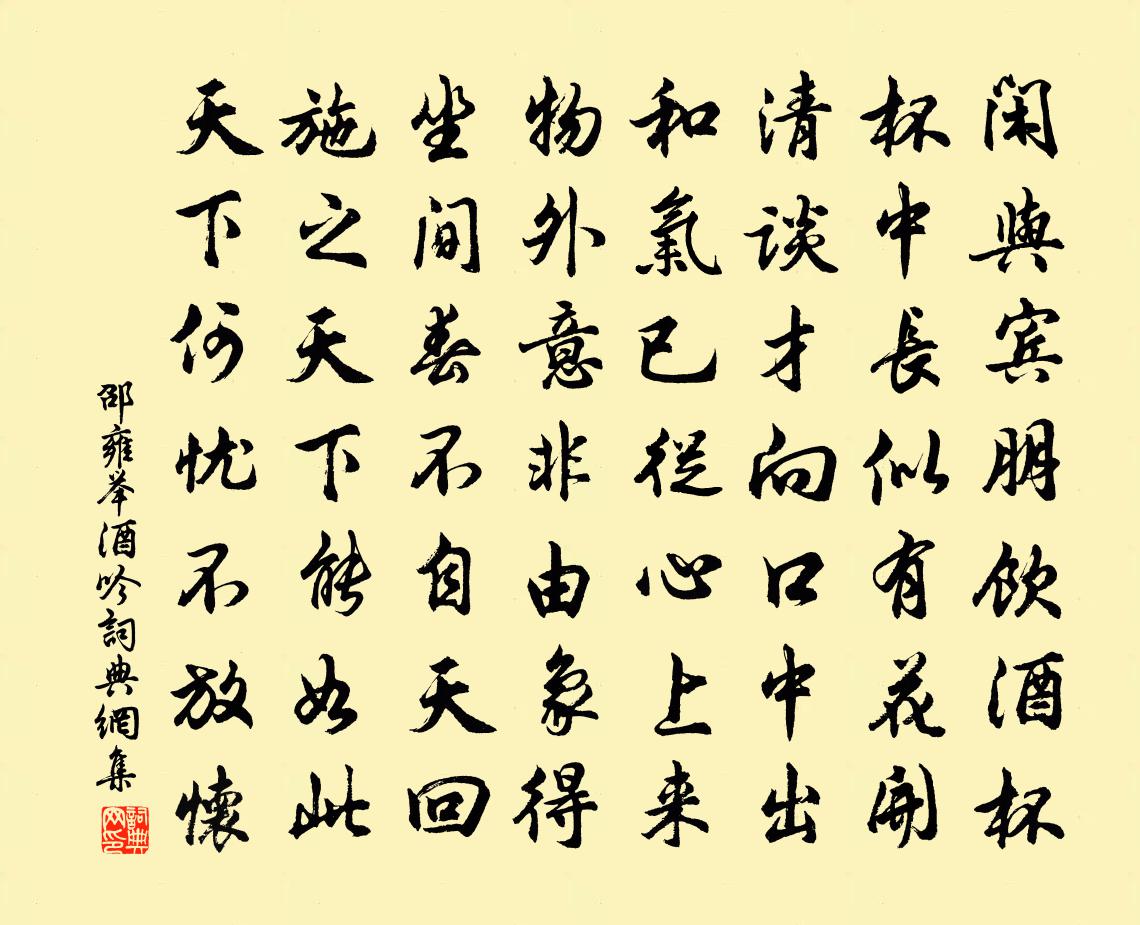 闲與宾朋飲酒杯
杯中長似有花開
清談才向口中出
和氣已從心上来
物外意非由象得
坐間春不自天回
施之天下能如此
天下何忧不放懷
邵雍举酒吟詞典網集
詞典网印